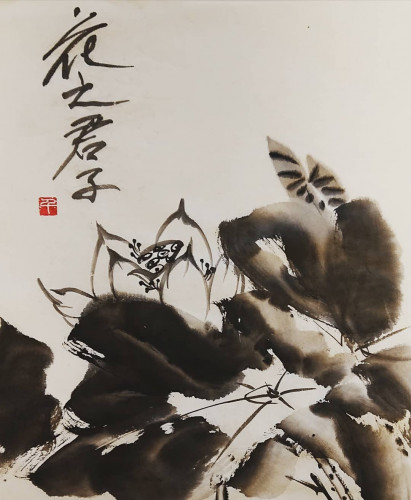 花之君子